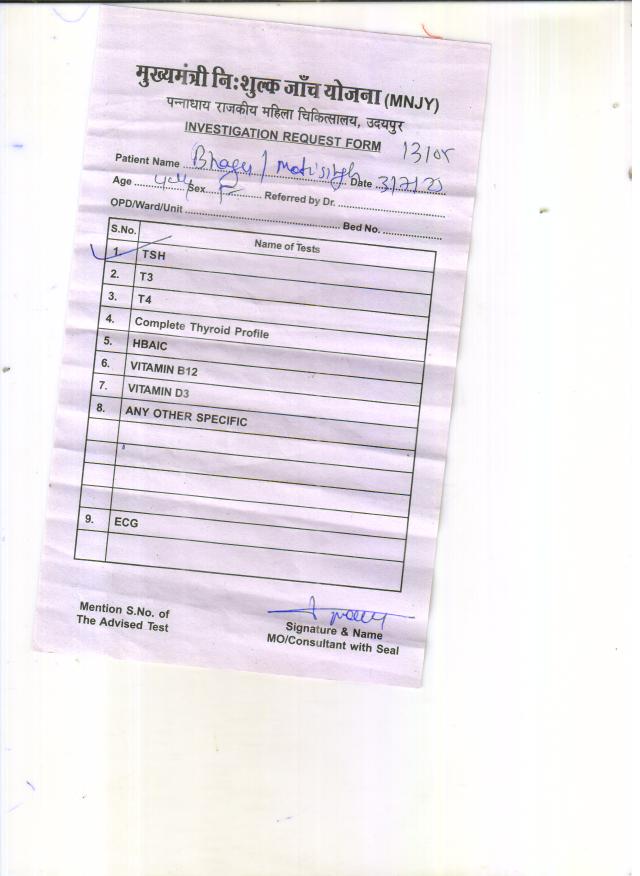 मुख्यमंत्री नि:शुल्क जाँच योजना (MNJY)
पन्नाधाय राजकीय महिला चिकित्सालय, उदयपुर
INVESTIGATION REQUEST FORM
Patient Name ........ / Motisingh Date ........
Age ........ Sex F ........ Referred by Dr. ........
OPD/Ward/Unit ........ Bed No. ........
S.No. Name of Tests
1. TSH
2. T3
3. T4
4. Complete Thyroid Profile
5. HBAIC
6. VITAMIN B12
7. VITAMIN D3
8. ANY OTHER SPECIFIC
9. ECG
Mention S.No. of
The Advised Test
Signature & Name
MO/Consultant with Seal